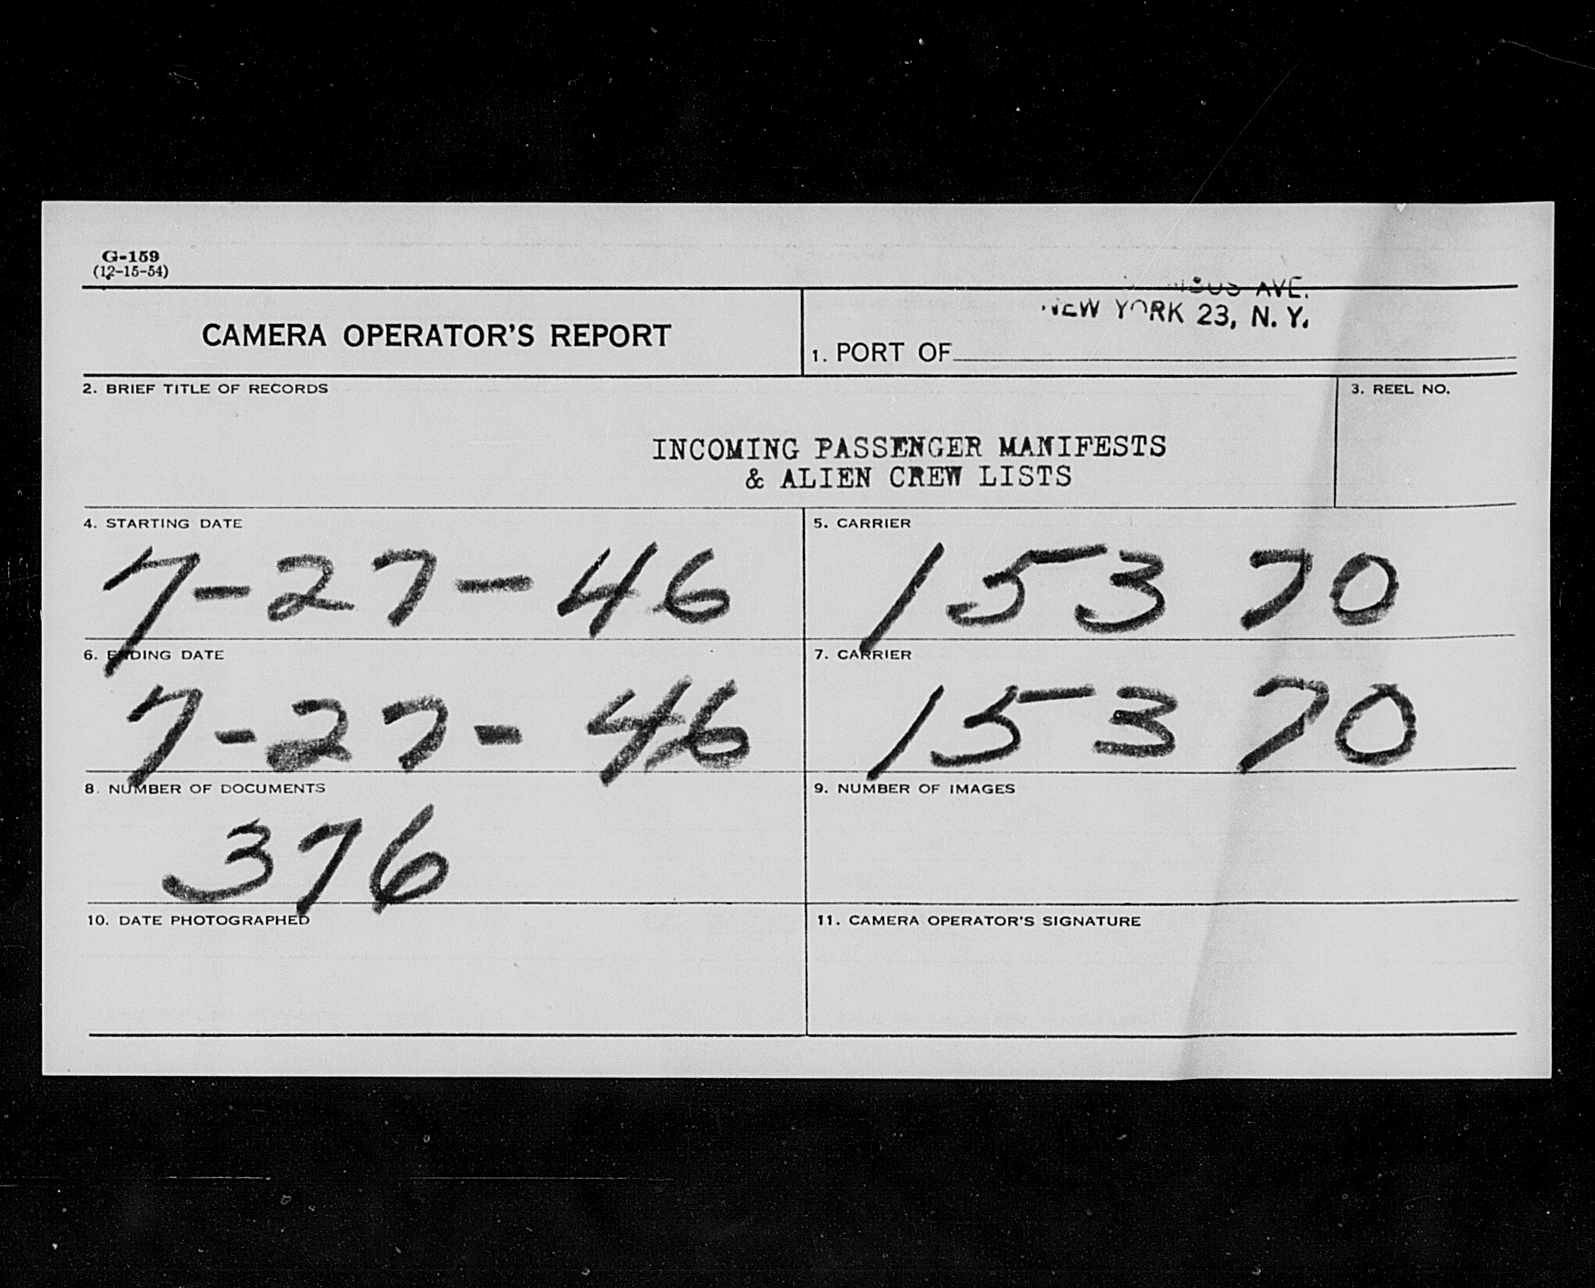 G-159
(12-15-54)
AVE.
NEW YORK 23, N. Y.
CAMERA OPERATOR'S REPORT
1. PORT OF
2. BRIEF TITLE OF RECORDS
3. REEL NO.
INCOMING PASSENGER MANIFESTS
& ALIEN CREW LISTS
4. STARTING DATE
7-27-46
5. CARRIER
153 70
6. ENDING DATE
7-27-46
7. CARRIER
153 70
8. NUMBER OF DOCUMENTS
376
9. NUMBER OF IMAGES
10. DATE PHOTOGRAPHED
11. CAMERA OPERATOR'S SIGNATURE